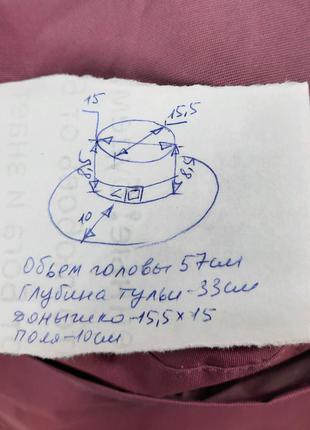 15
15,5
5,8
5,8
10
Обьем головы 57см
Глубина тульи-33см
донышко-15,5х15
поля-10см